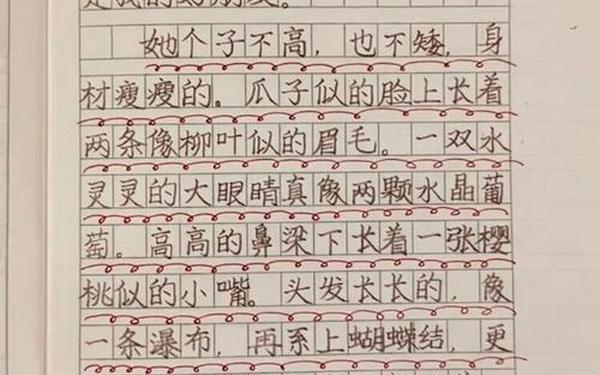 是我的好朋友。
她个子不高，也不矮，身
材瘦瘦的。瓜子似的脸上长着
两条像柳叶似的眉毛。一双水
灵灵的大眼睛真像两颗水晶葡
萄。高高的鼻梁下长着一张樱
桃似的小嘴。头发长长的，像
一条瀑布，再系上蝴蝶结，更